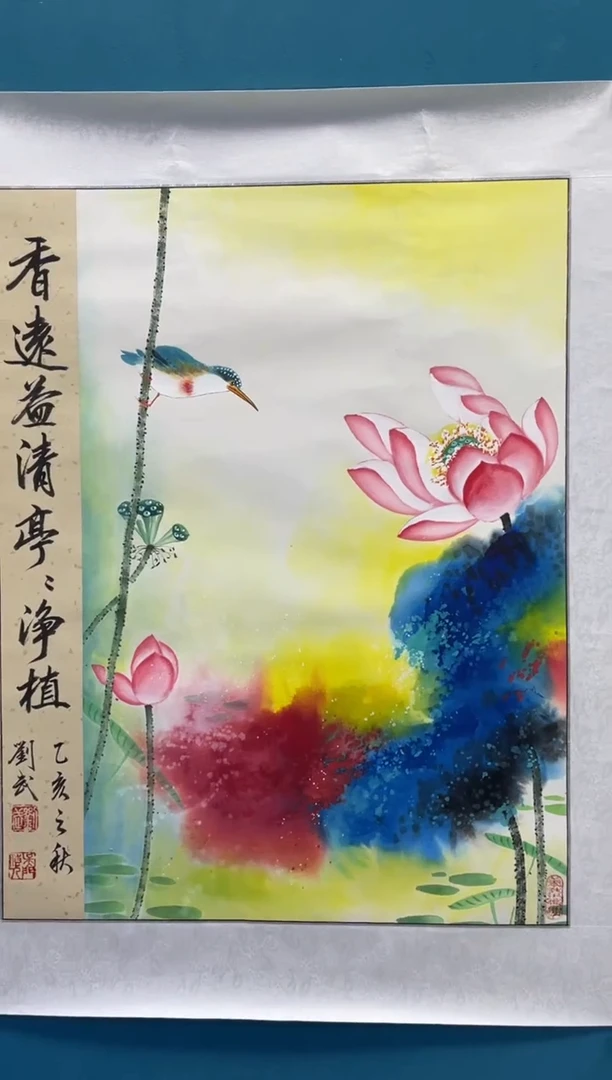 香遠益清亭〻净植
乙亥之秋
劉武